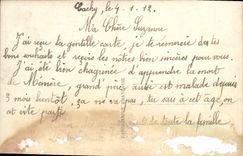 Cachy, le 4-1-12.
Ma Chère Suzanne
J'ai reçu ta gentille carte, je te remercie de tes
bons souhaits et reçois des nôtres bien sincères pour vous.
J'ai été bien chagrinée d'apprendre la mort
de Mémère, grand'père aussi est malade depuis
3 mois bientôt, ça ne va pas, tu sais à cet âge, on
est vite parti
de toute la famille